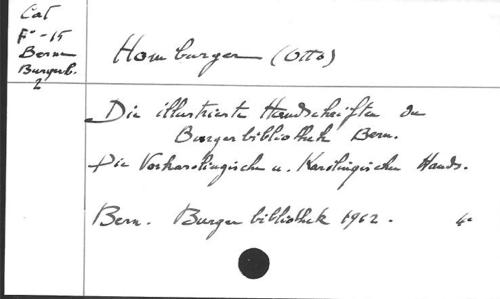 Cat
F°-15
Bern
Burgerb.
2
Homburger (Otto)
Die illustrierte Handschriften der
Burgerbibliothek Bern.
Die Vorkarolingische u. Karolingische Hands.
Bern. Burgerbibliothek 1962. 4°